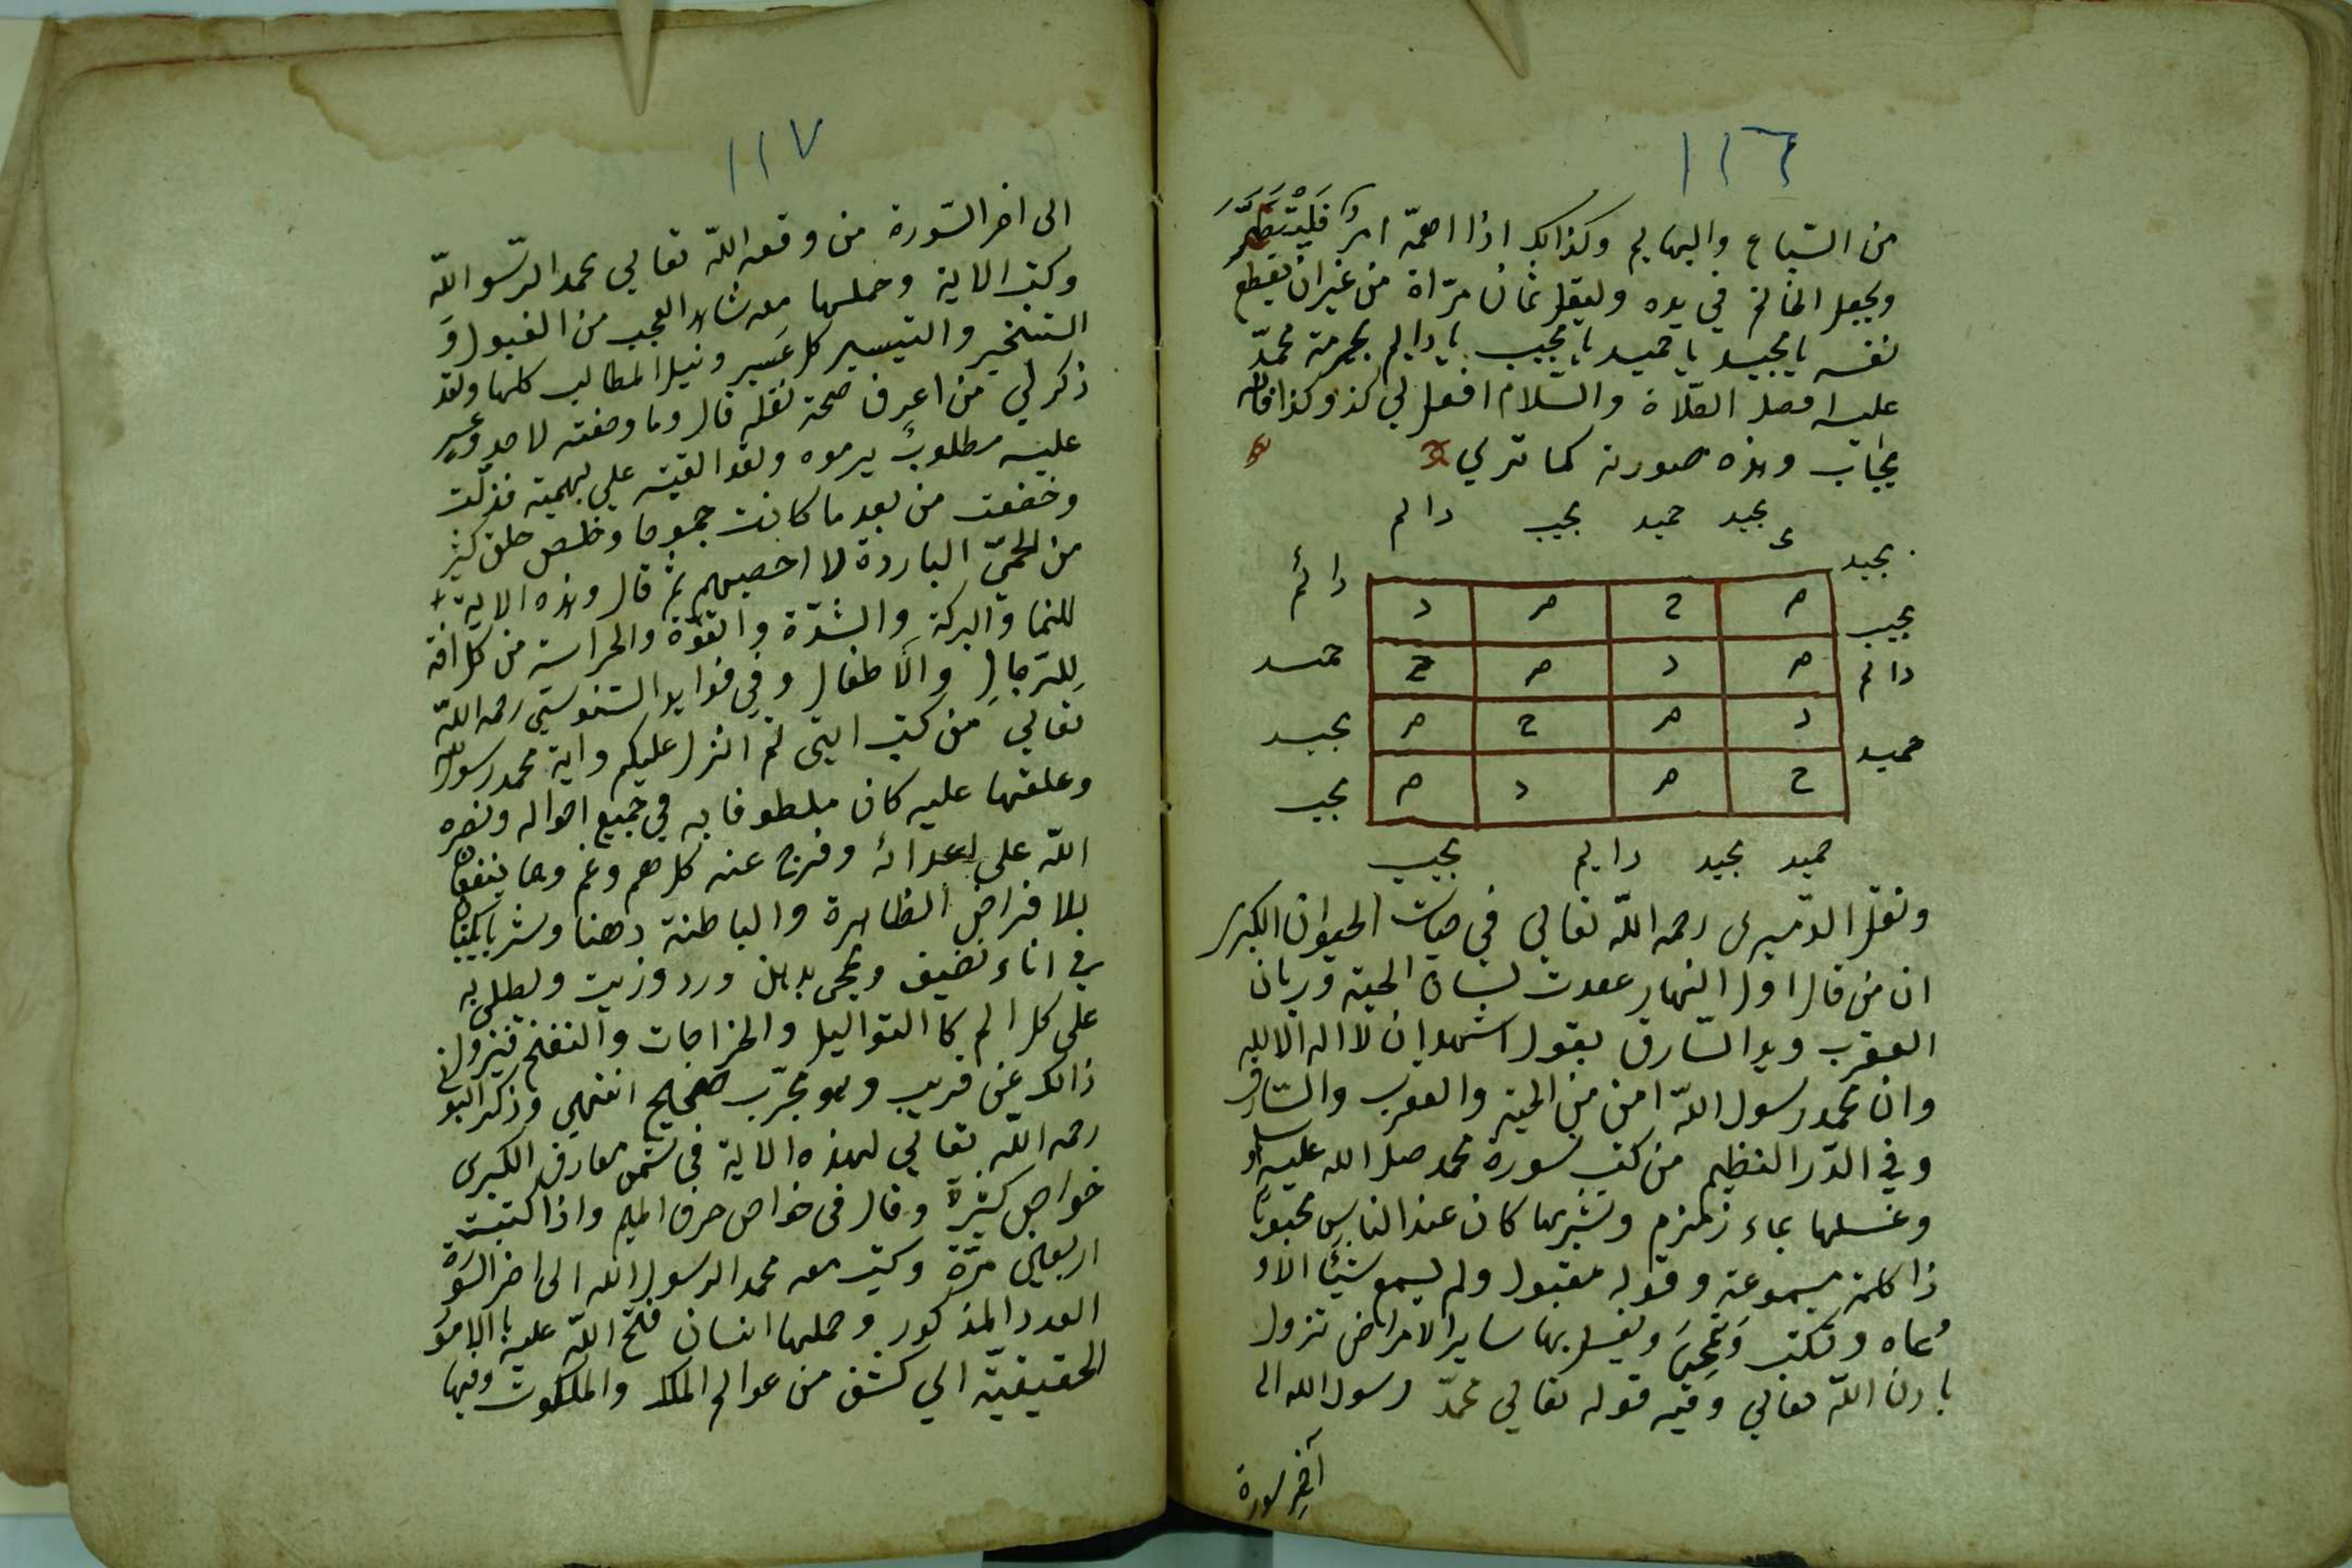 ١١٦
من السّباع والبهايم وكذالك اذا اهمّه امرٌ فَلْيَتَطَهَّرَ
ويجعل الخاتم في يده وليقل ثمان مرّاة من غير ان يقطع
نفسه يا مجيد يا حميد يا مجيب يا دايم بحرمة محمدّ
عليه افضل الصّلاة والسّلام افعل لي كذ وكذا فانه
يجاب وهذه صورته كما تري
مجيد حميد مجيب دالم
مجيد
م ح م د
دائم
مجيب
م د م ح
حميد
دالم
د م ح م
مجيد
حميد
ح م د م
مجيب
حميد مجيد دايم مجيب
ونقل الدّميرى رحمه اللّه تعالي في حيات الحيوان الكبرى
ان من قال اول النهار عقدت لسان الحية وزبان
العقرب ويد السّارق بقول اشهد ان لا اله الا الله
وان محمد رسول اللّه امن من الحية والعقرب والسّارق
وفي الدّر النظيم من كتب سورة محمد صلى الله عليه وسلم
وغسلها بماء زمزم وشربها كان عند الناس محبوبًا
ذا كلمة مسموعة وقوله مقبول ولم يسمع شيئًا الا و
وعاه وتكتب وَتمحىَ ويغسل بها ساير الامراض تزول
باذن اللّه تعالي وفيه قوله تعالي محمدّ رسول الله الى
آخِر سورة
١١٧
الى اخر السّورة من وقعه اللّه تعالي محمد الرّسو اللّه
وكتب الاية وحملها معه شاهد العجب من القبول وَ
التسخير والتيسير كل عَسير ونيل المطالب كلها ولقد
ذكر لي من اعرف صحة نقله قال وما وضفته لاحد وعسر
عليه مطلوبٌ يرموه ولقد القيته علي بهمية فذلّت
وخضعت من بعد ما كانت جموحا وخلص خلق كثير
من الحميّ الباردة لا احصيهم ثم قال وهذه الاية
للنما والبركة والشدّة والقوّة والحراسة من كل افة
لِلرّجالِ والاطفال وفي فوايد السّنوسي رحمه اللّه
تعالي من كتب ايتى ثم انزل عليكم واية محمد رسول الله
وعلقها عليه كان ملطوفا به في جميع احواله ونصره
اللّه على اعدائه وفرج عنه كل هم وغم وهما ينفعان
بلا فراض الظاهرة والباطنة دهنا وشربا يكتبان
في اناء نضيف ويمحى بدهن ورد وزيت ويطلى به
على كل الم كا التواليل والخراجات والنفخ فيزول
ذالك عن قريب وهو مجرّب صحيح انتهى وذكر البوني
رحمه اللّه تعالي لهذه الاية في شمس معارف الكبرى
خواص كثيرة وقال فى خواص حرف الميم واذا كتبت
اربعين مرّة وكتب معه محمد الرسول الله الى اخر السّورة
العدد المذكور وحملها انسان فتح اللّه عليه بالامور
الحقيقيّة الي كشف من عوالم الملك والملكوت وفيها